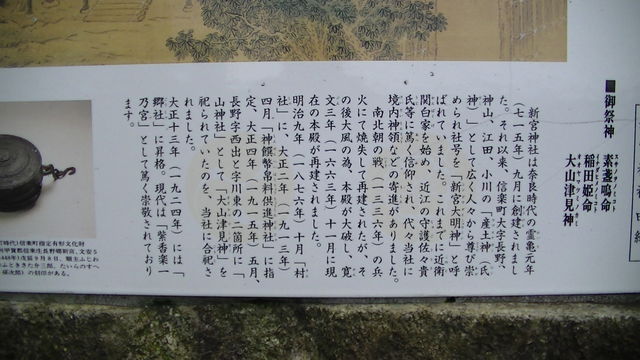 ■御祭神
素盞嗚命
稲田姫命
大山津見神
新宮神社は奈良時代の霊亀元年
(七一五年)九月に創建されまし
た。それ以来、信楽町大字長野、
神山、江田、小川の「産土神」(氏
神)として広く人々から尊び崇
められ社号を「新宮大明神」と呼
ばれていました。これまでに近衛
関白家を始め、近江の守護佐々貴
氏等に篤く信仰され、代々当社に
境内神領などの寄進がありました。
南北朝の戦(一三三六年)の兵
火にて焼失して再建されたが、そ
の後大風の為、本殿が大破し、寛
文三年(一六六三年)十一月に現
在の本殿が再建されました。
明治九年(一八七六年)十月「村
社」に、大正二年(一九一三年)
四月「神饌幣帛料供進神社」に指
定、大正四年(一九一五年)五月、
長野字西出と字川東の二箇所に「
山神社」として「大山津見神」を
祀られていたのを、当社に合祀さ
れました。
大正十三年(一九二四年)には「
郷社」に昇格。現代は「紫香楽一
乃宮」として篤く崇敬されており
ます。
町時代)信楽町指定有形文化財
甲賀郡信楽庄長野郷新宮、文安5
1448年)戊辰9月8日、願主ふじわ